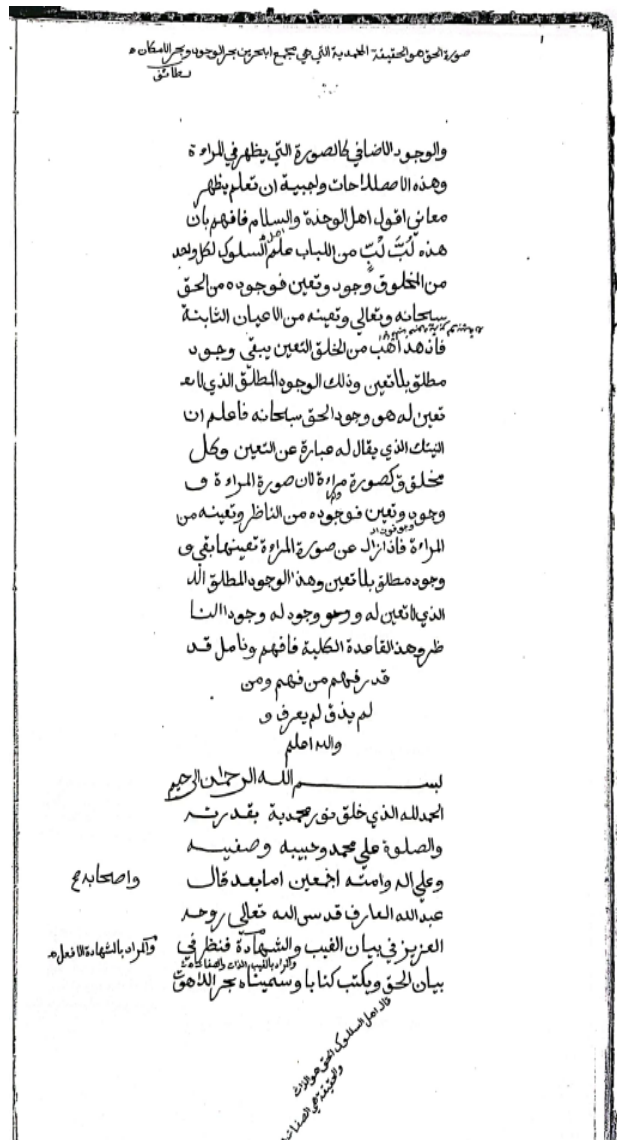 صورة الحق هو الحقيقة المحمدية التي هي مجمع ابحرين بحر الوجود وبحر الامكان ه
لطائف
والوجود الاضافي كالصورة التي يظهر في المراءة
وهذه الاصطلاحات واجبية ان تعلم يظهر
معاني اقول اهل الوحدة والسلام فافهم بان
هذه لُبُّ لُبٍّ من اللباب علم السلوك لكل واحد
اهل
من المخلوق وجود وتعين فوجوده من الحق
سبحانه وتعالي وتعينه من الاعيان الثابتة
فاذهذاهب من الخلق التعين يبقي وجود
مطلق بلا تعين وذلك الوجود المطلق الذي لا
تعين له هو وجود الحق سبحانه فاعلم ان
الذي يقال له عبارة عن التعين وكل
مخلوق كصورة مراءة لان صورة المراءة و
وجود وتعين فوجوده من الناظر وتعينه من
المراءة فاذا زال عن صورة المراءة تعينها بقي و
وجود مطلق بلا تعين وهذا الوجود المطلق الذ
الذي لا تعين له و وهو وجود له وجودا النا
ظر وهذ القاعدة الكلية فافهم وتامل قد
قد رفهم من فهم ومن
لم يذق لم يعرف و
والله اعلم
بسم الله الرحمان الرحيم
الحمد لله الذي خلق نور محمدية بقدرته
والصلوة علي محمد وحبيبه وصفيه
وعلي اله وامته اجمعين اما بعد قال
واصحابه ع
عبد الله العارف قدسى الله تعالى روحه
العزيز في بيان الغيب والشهادة فنظر في
والمراد بالشهادة الافعل ه
والمراد بالغيب الذات والصفات
بيان الحق ويكتب كتابا وسميناه بحر اللاهوت
قال اهل السلوك الحق هو الذات
والحقيقة هي الصفات